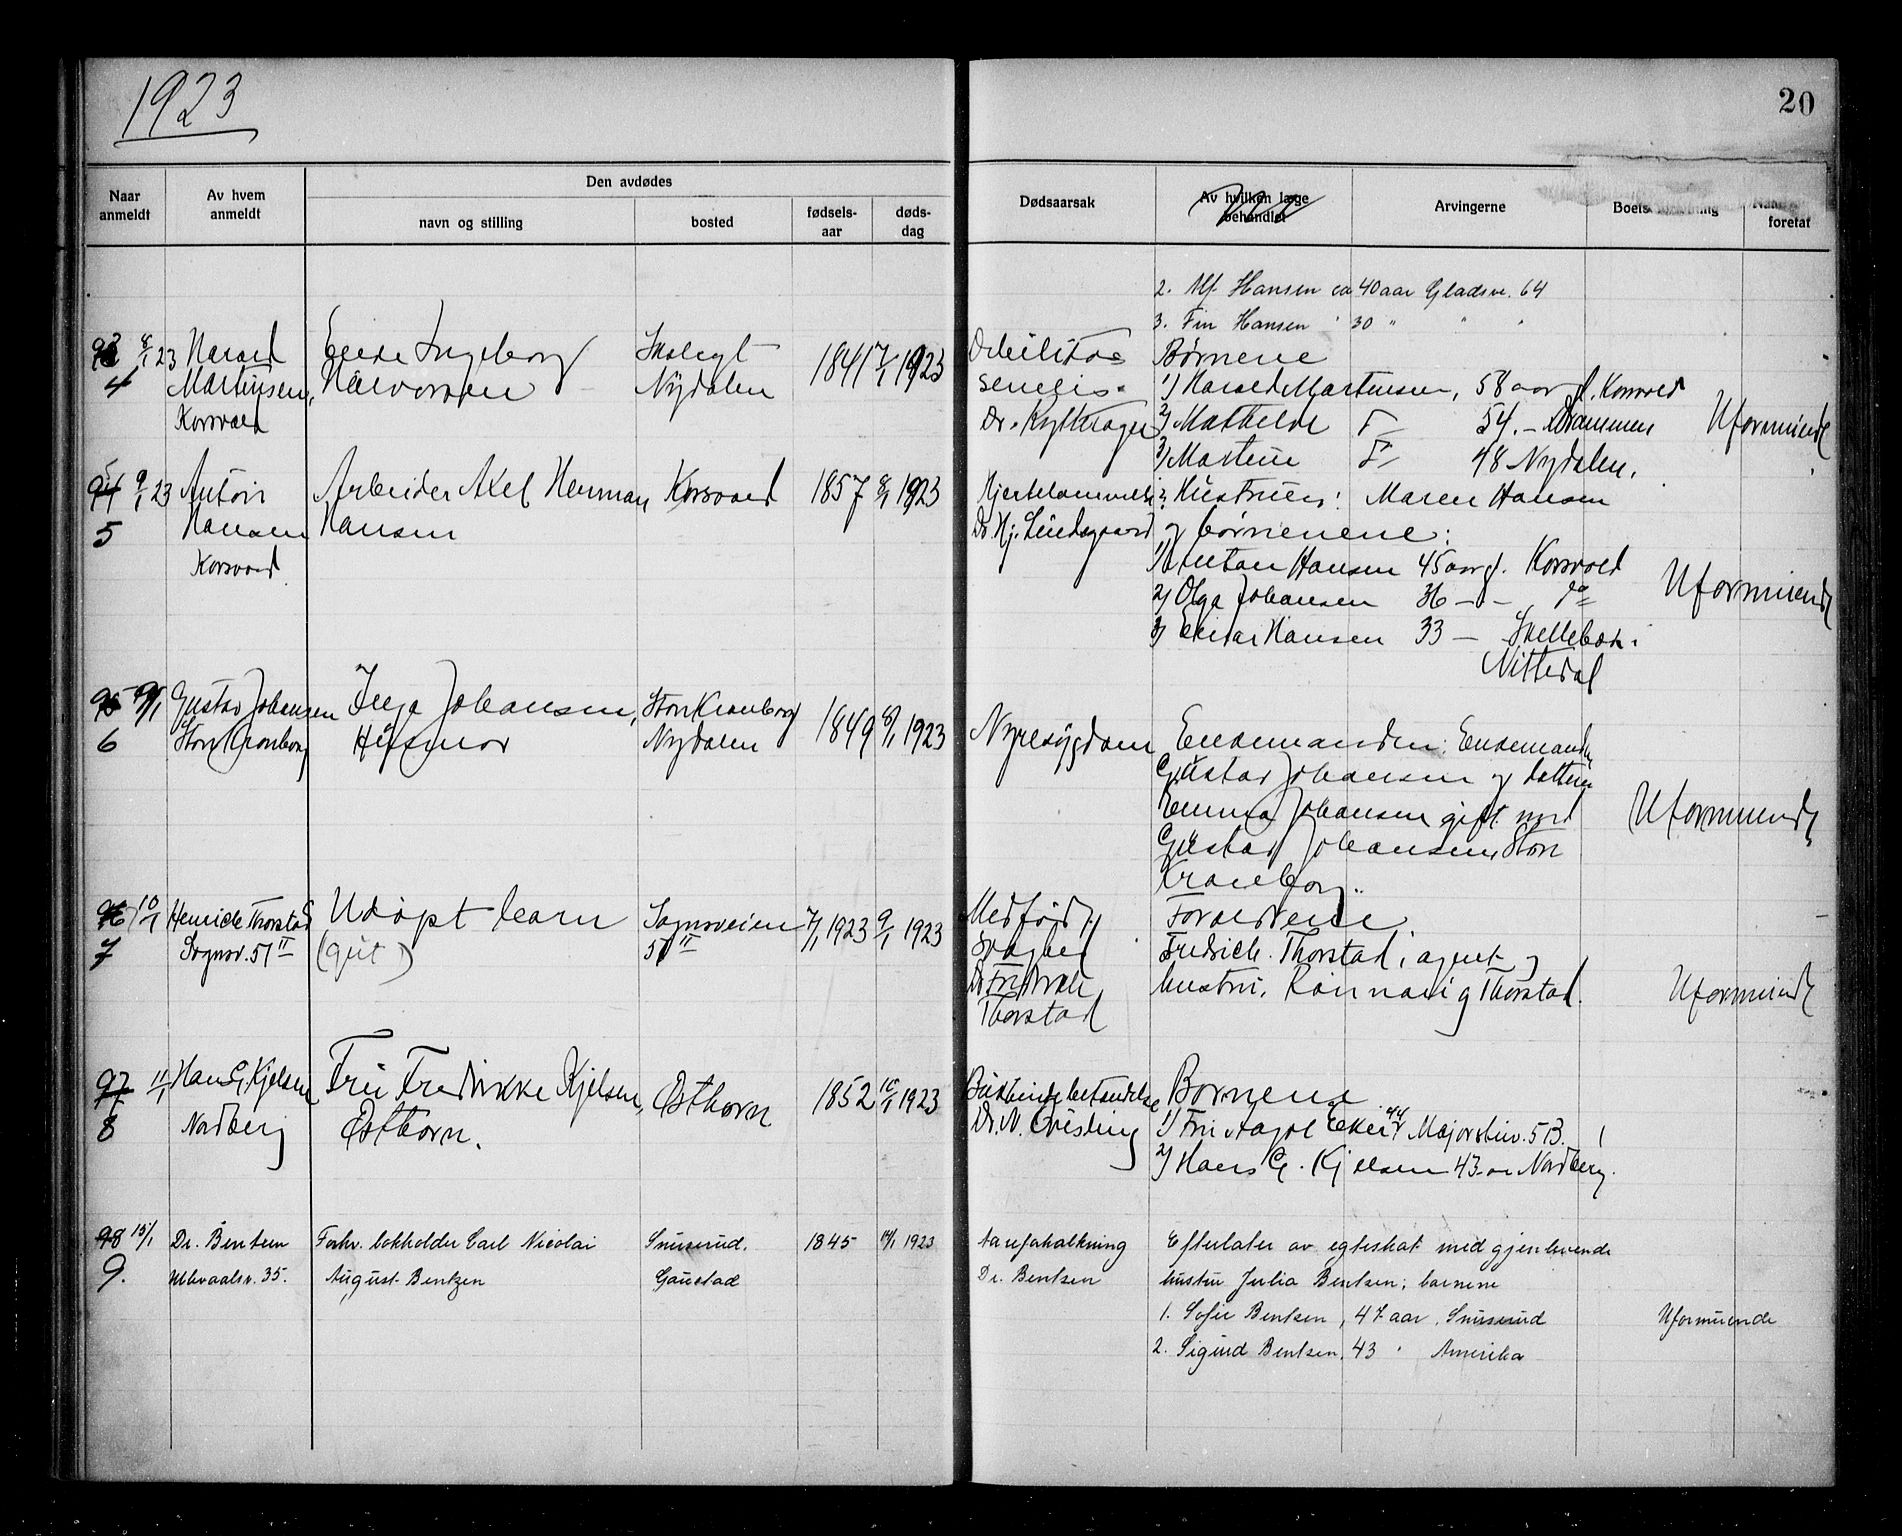 1923
20
Naar anmeldt
Av hvem anmeldt
Den avdødes
navn og stilling
bosted
fødsels-aar
døds-dag
Dødsaarsak
Av hvilken læge behandlet
Arvingerne
Boets
foretat
2. Alf Hansen ca 40 aar Gladsv. 64
3. Fin Hansen " 30 " " "
4
8/1 23
Harald
Martinsen,
Korsvold
Ingeborg
Halvorsen
Nydalen
1841
7/1 1923
Debilitas
senilis.
Børnene
1) Harald Martinsen, 58 aar g. Korsvold
2) Mathilde F 54. - Drammen
3) Martine F 48 Nydalen.
Uformuende
94
5
9/1 23
Anton
Hansen
Korsvold
Arbeider Axel Herman
Hansen
Korsvold
1857
8/1 1923
Hustruen: Maren Hansen
og børnenene:
1) Anton Hansen 45 aar g. Korsvold
2) Olga Johansen 36 - - " do
3) Einar Hansen 33 - Skillebæk i
Nittedal
Uformuende
95
6
9/1
Gustav Johansen
Store Kronborg
Inga Johansen,
Husmor
Store Kronborg
Nydalen
1849
8/1 1923
Nyresygdom
Enkemanden: Enkemanden
Gustav Johansen og datteren
Emma Johansen gift med
Gustav Johansen, Store
Kronborg.
Uformuende
96
7
10/1
Henrich Thorstad
Sognsv. 57 II
Udøpt barn
(gut)
Sognsveien
57 II
7/1 1923
9/1 1923
Medfødt
svaghed
Dr Fredrik
Thorstad
Forældrene
Fredrich Thorstad, agent og
hustru, Rannveig Thorstad.
Uformuende
97
8
11/1
Hans G. Kjelsen
Nordberg
Fru Fredrikke Kjelsen,
Østhorn.
Østhorn
1852
10/1 1923
Dr. N.
Børnene
1) Fru Aagot 44 Majorstuv. 5B.
2) Hans G. Kjelsen 43 aar Nordberg.
98
9.
15/1
Dr. Bentsen
Ullevaalsv. 35.
Forhv. bokholder Carl Nicolai
August Bentzen
Snuserud.
Gaustad
1845
14/1 1923
Aareforkalkning
Dr. Bentsen
Efterlater av egteskab med gjenlevende
hustru Julia Bentsen; barnene
1. Sofie Bentsen, 47 aar, Snuserud
2. Sigurd Bentsen, 43 " Amerika
Uformuende